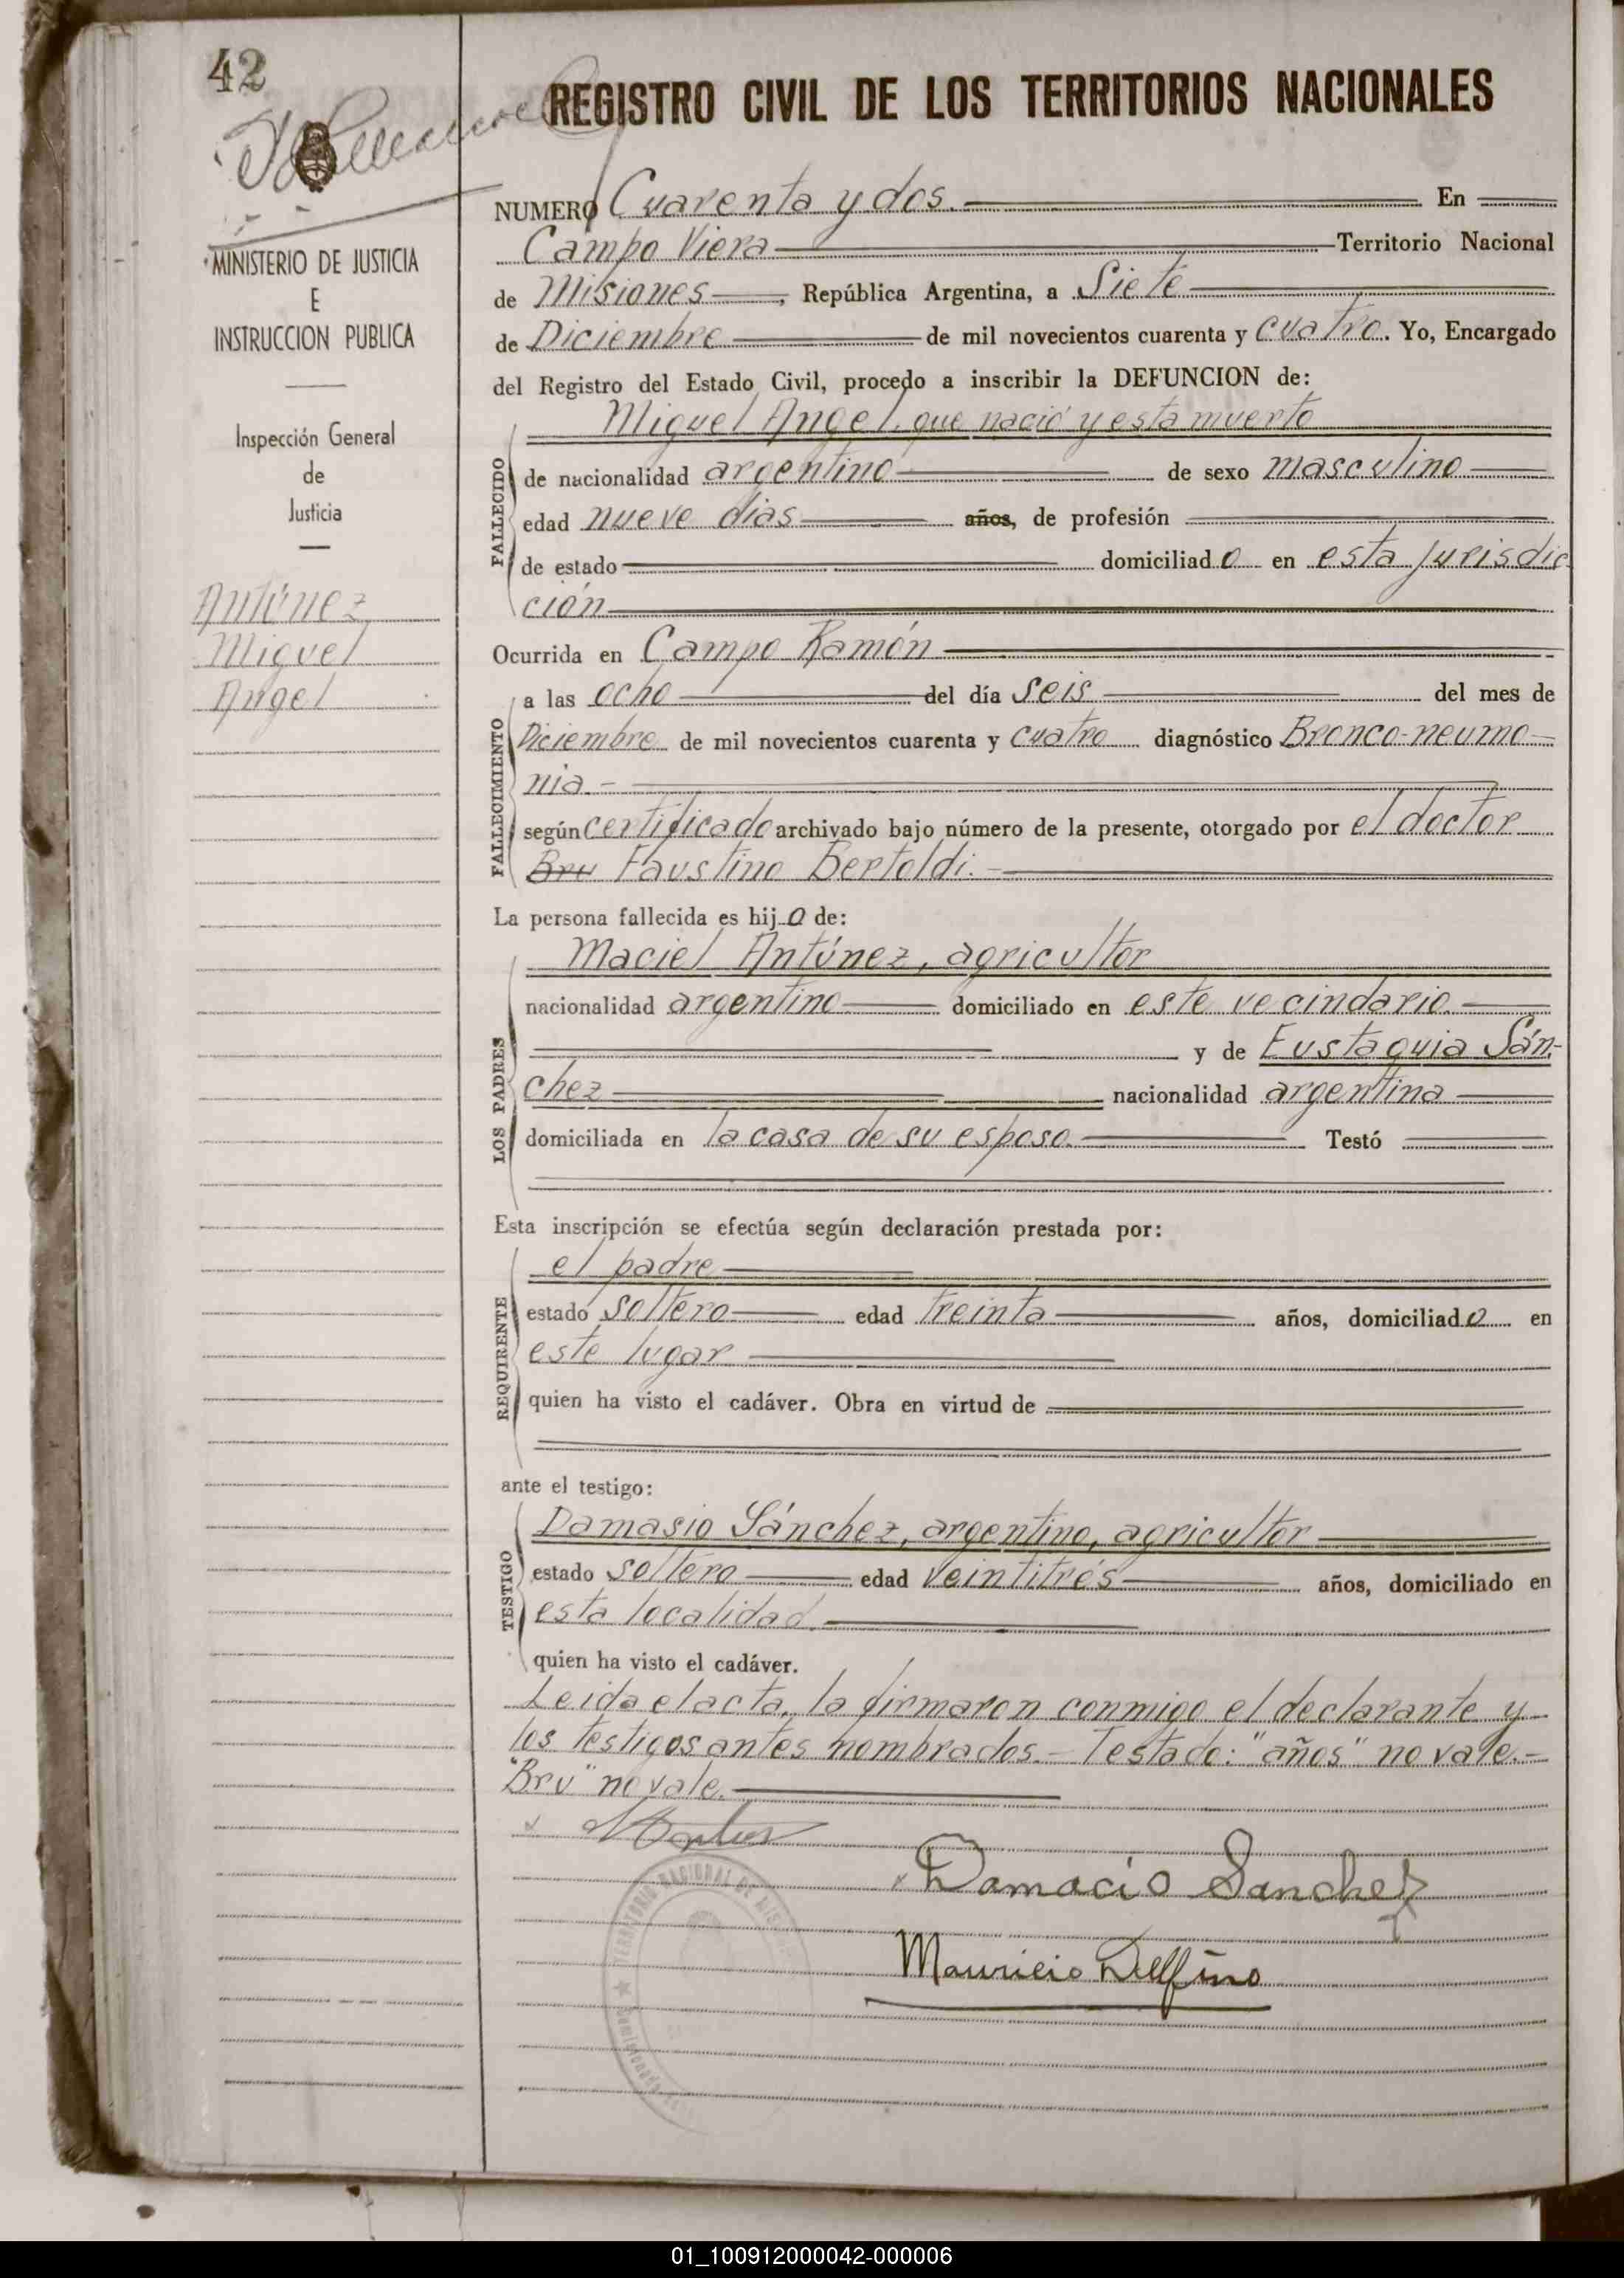 42
REGISTRO CIVIL DE LOS TERRITORIOS NACIONALES
MINISTERIO DE JUSTICIA
E
INSTRUCCION PUBLICA
Inspección General
de
Justicia
Antúnez
Miguel
Angel
NUMERO Cuarenta y dos. En
Campo Viera Territorio Nacional
de Misiones, República Argentina, a Siete
de Diciembre de mil novecientos cuarenta y cuatro. Yo, Encargado
del Registro del Estado Civil, procedo a inscribir la DEFUNCION de:
Miguel Angel, que nació y esta muerto
FALLECIDO
de nacionalidad argentino de sexo masculino
edad nueve dias años, de profesión
de estado domiciliado en esta jurisdic
ción
Ocurrida en Campo Ramón
a las ocho del día seis del mes de
FALLECIMIENTO
Diciembre de mil novecientos cuarenta y cuatro diagnóstico Bronco-neumo
nia.-
según certificado archivado bajo número de la presente, otorgado por el doctor
Bru Faustino Bertoldi.-
La persona fallecida es hijo de:
Maciel Antúnez, agricultor
LOS PADRES
nacionalidad argentino domiciliado en este vecindario.
y de Eustaquia Sán-
chez nacionalidad argentina
domiciliada en la casa de su esposo. Testó
Esta inscripción se efectúa según declaración prestada por:
el padre
REQUIRENTE
estado soltero edad treinta años, domiciliado en
este lugar
quien ha visto el cadáver. Obra en virtud de
ante el testigo:
Damasio Sánchez, argentino, agricultor
TESTIGO
estado soltero edad veintitrés años, domiciliado en
esta localidad.
quien ha visto el cadáver.
Leida el acta, la firmaron conmigo el declarante y
los testigos antes nombrados.- Testado: "años" no vale.-
"Bru" no vale.
Damacio Sanchez
Mauricio Delfino
TERRITORIO NACIONAL DE MIS
01_100912000042-000006